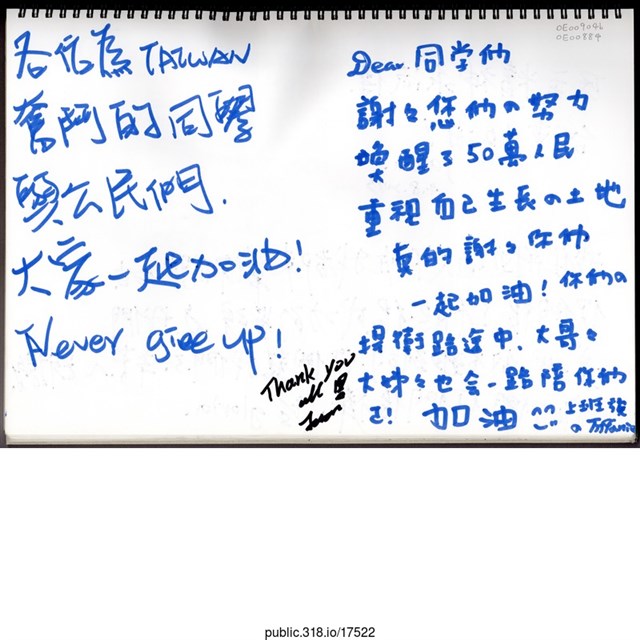 各位為TAIWAN
奮鬥的同學
與公民們.
大家一起加油!
Never give up!
Thank you
all
Jason
OE009046
OE00884
Dear 同学們
謝々您們の努力
喚醒了50萬人民
重視自己生長の土地
真的謝々你們
一起加油!你們の
捍衛路途中,大哥々
大姊々也会一路陪你們
己! 加油
上班族
のTiffany
public.318.io/17522